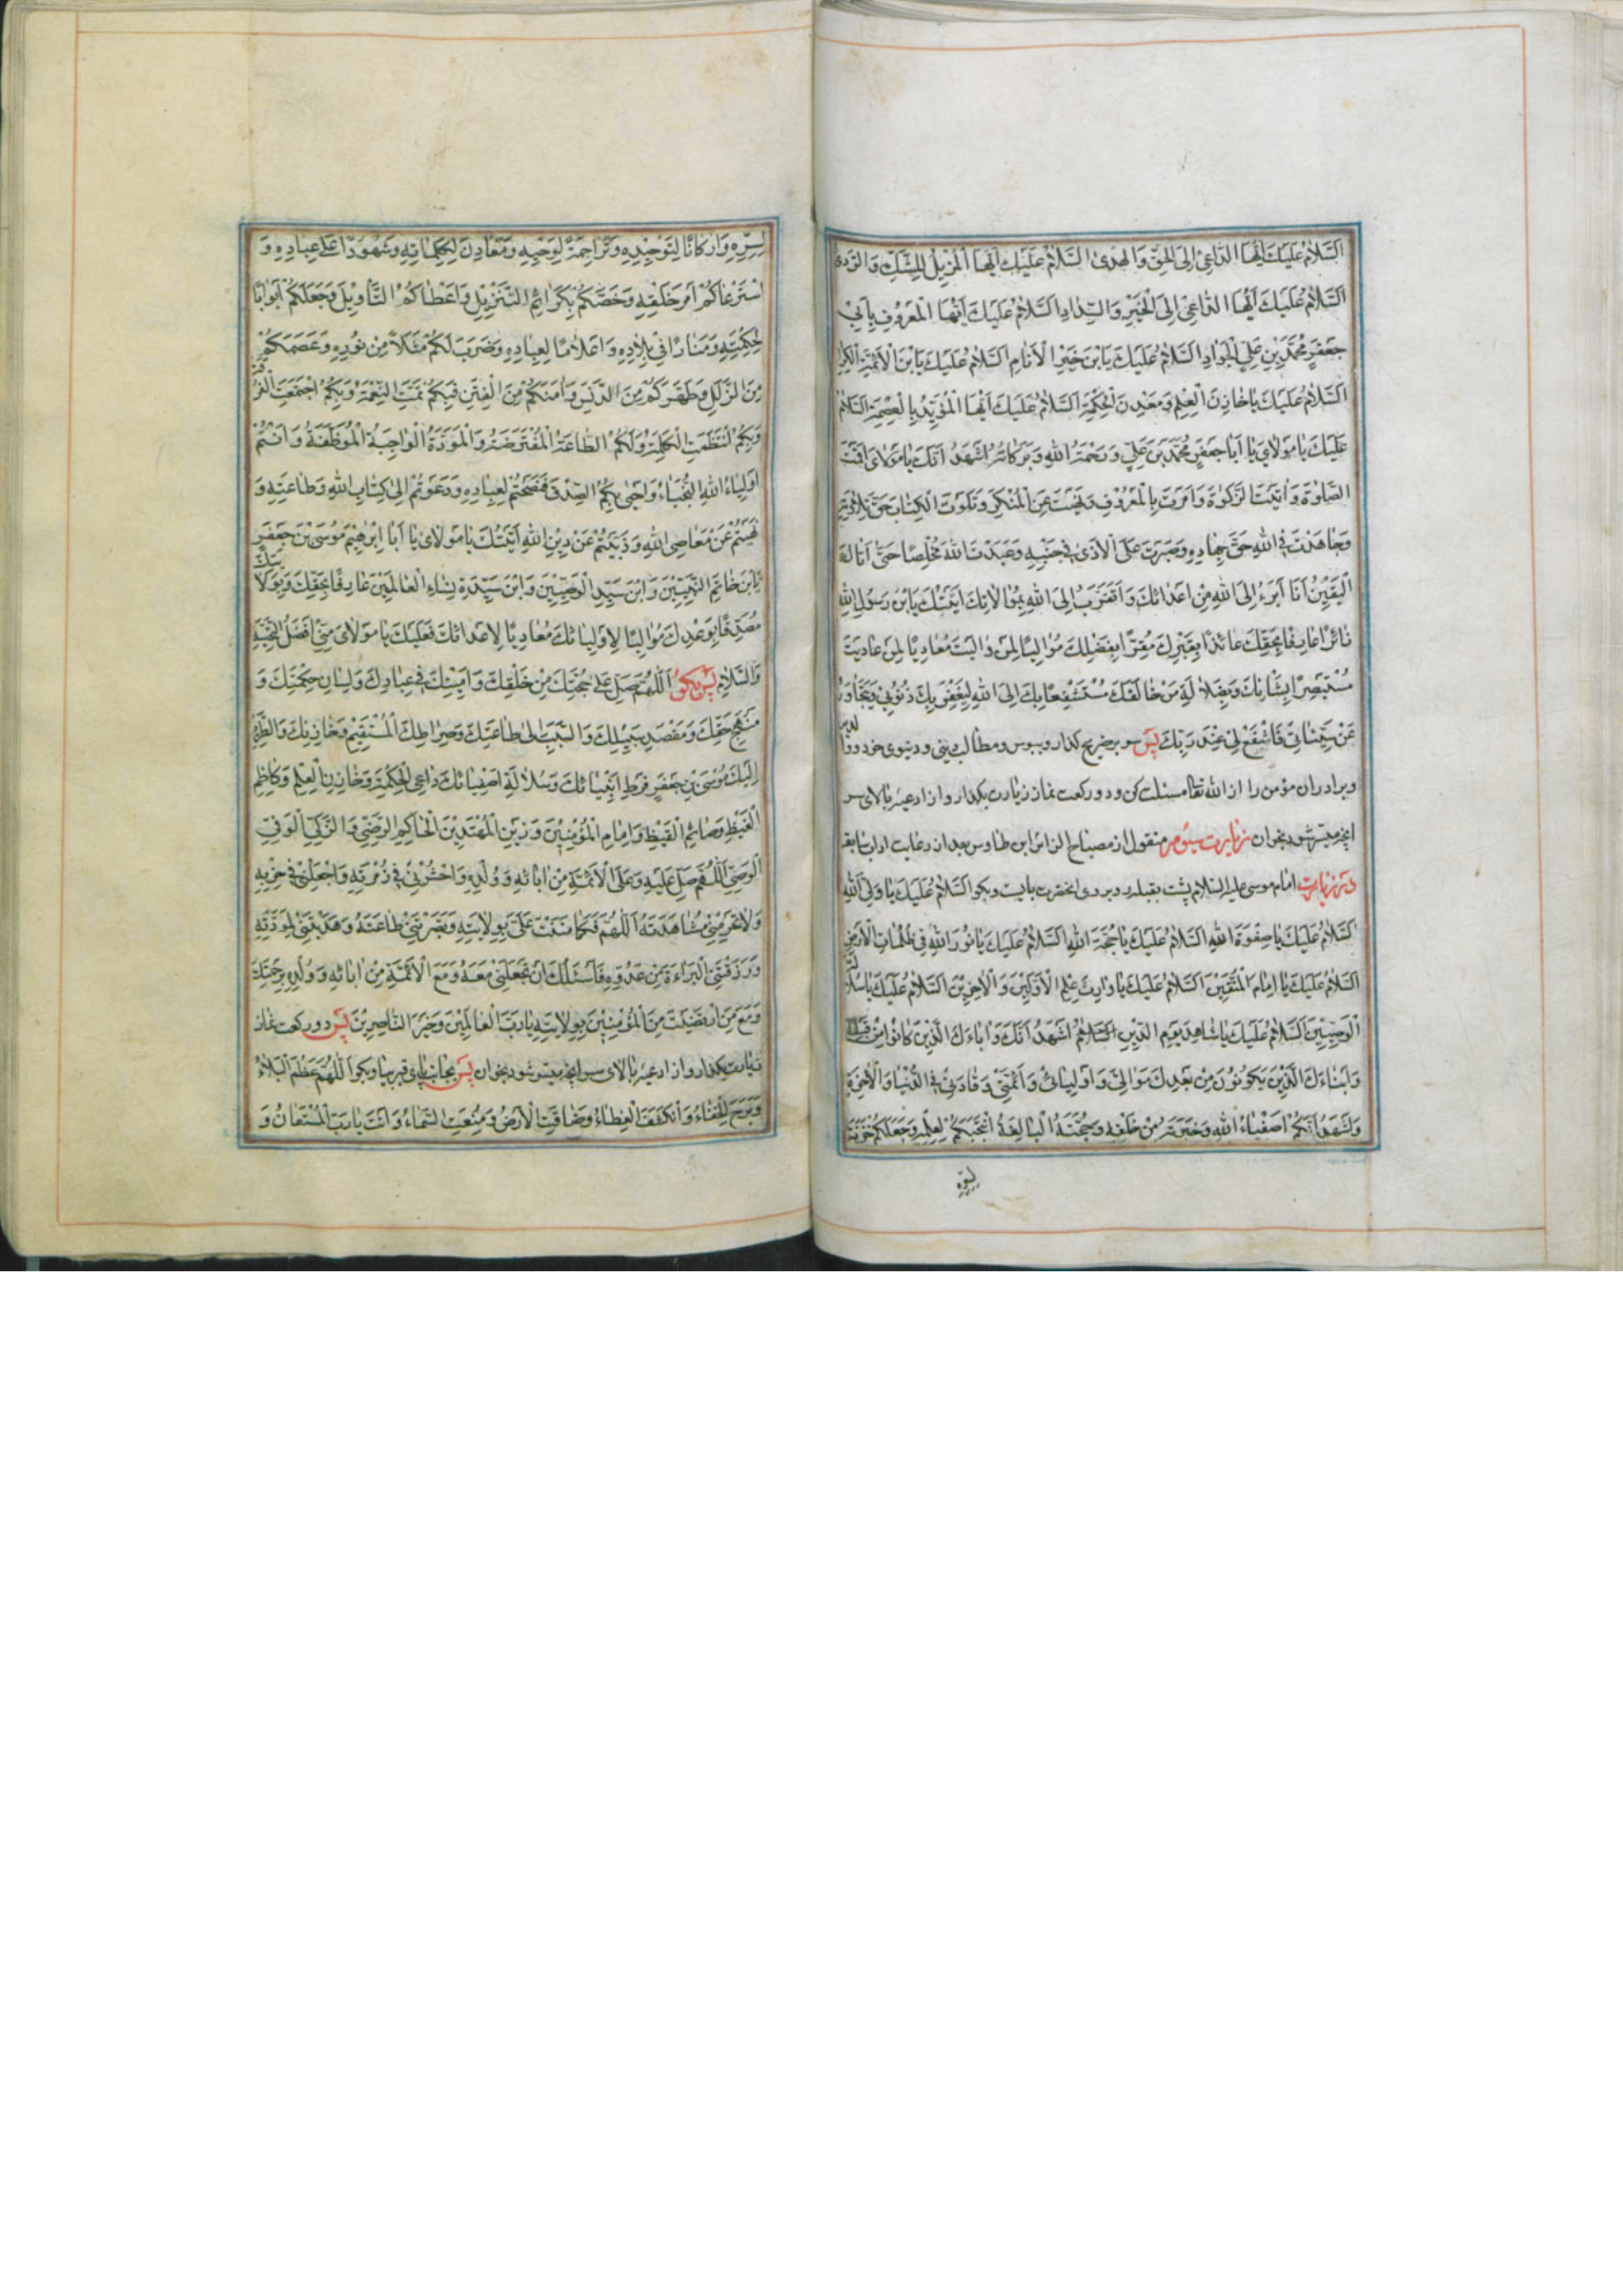 اَلسَّلامُ عَلَيْكَ اَيُّهَا الدَّاعِىْ اِلَى الْحَقِّ وَالْهُدٰى اَلسَّلامُ عَلَيْكَ اَيُّهَا الْمُزِيْلُ لِلشَّكِّ وَالرَّدٰى
اَلسَّلامُ عَلَيْكَ اَيُّهَا الدَّاعِىْ اِلَى الْخَيْرِ وَالسَّدَادِ اَلسَّلامُ عَلَيْكَ اَيُّهَا الْمَعْرُوْفُ بِاَبِىْ
جَعْفَرٍ مُحَمَّدِ بْنِ عَلِىٍّ الْجَوَادِ اَلسَّلامُ عَلَيْكَ يَابْنَ خَيْرِ الْاَنَامِ اَلسَّلامُ عَلَيْكَ يَابْنَ الْاَئِمَّةِ الْكِرَامِ
اَلسَّلامُ عَلَيْكَ يَا خَازِنَ الْعِلْمِ وَمَعْدِنَ الْحِكْمَةِ اَلسَّلامُ عَلَيْكَ اَيُّهَا الْمُؤَيَّدُ بِالْعِصْمَةِ اَلسَّلامُ
عَلَيْكَ يَا مَوْلَاىَ يَا اَبَا جَعْفَرٍ مُحَمَّدَ بْنَ عَلِىٍّ وَرَحْمَةُ اللهِ وَبَرَكَاتُهُ اَشْهَدُ اَنَّكَ يَا مَوْلَاىَ اَقَمْتَ
الصَّلٰوةَ وَاٰتَيْتَ الزَّكٰوةَ وَاَمَرْتَ بِالْمَعْرُوْفِ وَنَهَيْتَ عَنِ الْمُنْكَرِ وَتَلَوْتَ الْكِتَابَ حَقَّ تِلَاوَتِهِ
وَجَاهَدْتَ فِى اللهِ حَقَّ جِهَادِهِ وَصَبَرْتَ عَلَى الْاَذٰى فِىْ جَنْبِهِ وَعَبَدْتَ اللهَ مُخْلِصًا حَتّٰى اَتَاكَ
الْيَقِيْنُ اَنَا اَبْرَءُ اِلَى اللهِ مِنْ اَعْدَائِكَ وَاَتَقَرَّبُ اِلَى اللهِ بِمُوَالَاتِكَ اَتَيْتُكَ يَابْنَ رَسُوْلِ اللهِ
زَائِرًا عَارِفًا بِحَقِّكَ عَائِذًا بِقَبْرِكَ مُقِرًّا بِفَضْلِكَ مُوَالِيًا لِمَنْ وَالَيْتَ مُعَادِيًا لِمَنْ عَادَيْتَ
مُسْتَبْصِرًا بِشَأْنِكَ وَبِضَلَالَةِ مَنْ خَالَفَكَ مُسْتَشْفِعًا بِكَ اِلَى اللهِ لِيَغْفِرَ بِكَ ذُنُوْبِىْ وَيَتَجَاوَزَ
عَنْ سَيِّئَاتِىْ فَاشْفَعْ لِىْ عِنْدَ رَبِّكَ پس سر بر ضريح گذار وببوس ومطالب دينى ودنيوى خود ووالدين
وبرادران مؤمن را از الله تعالى مسئلت كن ودو ركعت نماز زيارت بگذار واز ادعيۀ بالاى سر
آنچه ميسّر شود بخوان زيارت سيّوم منقول از مصباح الزائر ابن طاوس بعد از رعايت اداب سابقه
در زيارت امام موسى عليه السّلام پشت بقبله رو بروى آنحضرت بايست وبگو اَلسَّلامُ عَلَيْكَ يَا وَلِىَّ اللهِ
اَلسَّلامُ عَلَيْكَ يَا صَفْوَةَ اللهِ اَلسَّلامُ عَلَيْكَ يَا حُجَّةَ اللهِ اَلسَّلامُ عَلَيْكَ يَا نُوْرَ اللهِ فِىْ ظُلُمَاتِ الْاَرْضِ
اَلسَّلامُ عَلَيْكَ يَا اِمَامَ الْمُتَّقِيْنَ اَلسَّلامُ عَلَيْكَ يَا وَارِثَ عِلْمِ الْاَوَّلِيْنَ وَالْاٰخِرِيْنَ اَلسَّلامُ عَلَيْكَ يَا سُلَالَةَ
الْوَصِيِّيْنَ اَلسَّلامُ عَلَيْكَ يَا شَاهِدَ يَوْمِ الدِّيْنِ اَلسَّلامُ اَشْهَدُ اَنَّكَ وَاٰبَاءَكَ الَّذِيْنَ كَانُوْا مِنْ قَبْلِكَ
وَاَبْنَاءَكَ الَّذِيْنَ يَكُوْنُوْنَ مِنْ بَعْدِكَ مَوَالِىَّ وَاَوْلِيَائِىْ وَاَئِمَّتِىْ وَقَادَتِىْ فِى الدُّنْيَا وَالْاٰخِرَةِ
وَاَشْهَدُ اَنَّكُمْ اَصْفِيَاءُ اللهِ وَخِيَرَتُهُ مِنْ خَلْقِهِ وَحُجَّتُهُ الْبَالِغَةُ انْتَجَبَكُمْ لِعِلْمِهِ وَجَعَلَكُمْ خَزَنَةً
لِسِرِّهِ
لِسِرِّهِ وَاَرْكَانًا لِتَوْحِيْدِهِ وَتَرَاجِمَةً لِوَحْيِهِ وَمَعَادِنَ لِكَلِمَاتِهِ وَشُهُوْدًا عَلٰى عِبَادِهِ وَ
اسْتَرْعَاكُمْ اَمْرَ خَلْقِهِ وَخَصَّكُمْ بِكَرَائِمِ التَّنْزِيْلِ وَاَعْطَاكُمُ التَّأْوِيْلَ وَجَعَلَكُمْ اَبْوَابًا
لِحِكْمَتِهِ وَمَنَارًا فِىْ بِلَادِهِ وَاَعْلَامًا لِعِبَادِهِ وَضَرَبَ لَكُمْ مَثَلًا مِنْ نُوْرِهِ وَعَصَمَكُمْ
مِنَ الزَّلَلِ وَطَهَّرَكُمْ مِنَ الدَّنَسِ وَاٰمَنَكُمْ مِنَ الْفِتَنِ فَبِكُمْ تَمَّتِ النِّعْمَةُ وَبِكُمْ اجْتَمَعَتِ الْفُرْقَةُ
وَبِكُمْ انْتَظَمَتِ الْكَلِمَةُ وَلَكُمُ الطَّاعَةُ الْمُفْتَرَضَةُ وَالْمَوَدَّةُ الْوَاجِبَةُ الْمُوَظَّفَةُ وَاَنْتُمْ
اَوْلِيَاءُ اللهِ النُّجَبَاءُ وَاَحْيٰى بِكُمُ الصِّدْقَ فَنَصَحْتُمْ لِعِبَادِهِ وَدَعَوْتُمْ اِلٰى كِتَابِ اللهِ وَطَاعَتِهِ وَ
نَهَيْتُمْ عَنْ مَعَاصِى اللهِ وَذَبَبْتُمْ عَنْ دِيْنِ اللهِ اَتَيْتُكَ يَا مَوْلَاىَ يَا اَبَا اِبْرٰهِيْمَ مُوْسَى بْنَ جَعْفَرٍ
يَابْنَ خَاتَمِ النَّبِيِّيْنَ وَابْنَ سَيِّدِ الْوَصِيِّيْنَ وَابْنَ سَيِّدَةِ نِسَاءِ الْعَالَمِيْنَ عَارِفًا بِحَقِّكَ وَبِوَلَايَتِكَ
مُصَدِّقًا بِوَعْدِكَ مُوَالِيًا لِاَوْلِيَائِكَ مُعَادِيًا لِاَعْدَائِكَ فَعَلَيْكَ يَا مَوْلَاىَ مِنِّىْ اَفْضَلُ التَّحِيَّةِ
وَالسَّلَامِ پس بگو اَللّٰهُمَّ صَلِّ عَلٰى حُجَّتِكَ مِنْ خَلْقِكَ وَاَمِيْنِكَ فِىْ عِبَادِكَ وَلِسَانِ حِكْمَتِكَ وَ
مَنْهَجِ حَقِّكَ وَمَقْصَدِ سَبِيْلِكَ وَالسَّبَبِ اِلٰى طَاعَتِكَ وَصِرَاطِكَ الْمُسْتَقِيْمِ وَخَازِنِكَ وَالطَّرِيْقِ
اِلَيْكَ مُوْسَى بْنِ جَعْفَرٍ فَرَطِ اَنْبِيَائِكَ وَسُلَالَةِ اَصْفِيَائِكَ دَاعِى الْحِكْمَةِ وَخَازِنِ الْعِلْمِ وَكَاظِمِ
الْغَيْظِ وَصَائِمِ الْقَيْظِ وَاِمَامِ الْمُؤْمِنِيْنَ وَزَيْنِ الْمُهْتَدِيْنَ الْحَاكِمِ الرَّضِىِّ وَالزَّكِىِّ الْوَفِىِّ
الْوَصِىِّ اَللّٰهُمَّ صَلِّ عَلَيْهِ وَعَلَى الْاَئِمَّةِ مِنْ اٰبَائِهِ وَوُلْدِهِ وَاحْشُرْنِىْ فِىْ زُمْرَتِهِ وَاجْعَلْنِىْ فِىْ حِزْبِهِ
وَلَا تَحْرِمْنِىْ مُشَاهَدَتَهُ اَللّٰهُمَّ فَكَمَا مَنَنْتَ عَلَىَّ بِوِلَايَتِهِ وَبَصَّرْتَنِىْ طَاعَتَهُ وَهَدَيْتَنِىْ لِمَوَدَّتِهِ
وَرَزَقْتَنِى الْبَرَاءَةَ مِنْ عَدُوِّهِ فَاَسْئَلُكَ اَنْ تَجْعَلَنِىْ مَعَهُ وَمَعَ الْاَئِمَّةِ مِنْ اٰبَائِهِ وَوُلْدِهِ بِرَحْمَتِكَ
وَمَعَ مَنِ ارْتَضَيْتَ مِنَ الْمُؤْمِنِيْنَ بِوِلَايَتِهِ يَا رَبَّ الْعَالَمِيْنَ وَخَيْرَ النَّاصِرِيْنَ پس دو ركعت نماز
زيارت بگذار واز ادعيۀ بالاى سر آنچه ميسّر شود بخوان پس بجانب پاى قبر بيا وبگو اَللّٰهُمَّ عَظُمَ الْبَلَاءُ
وَبَرِحَ الْخَفَاءُ وَانْكَشَفَ الْغِطَاءُ وَضَاقَتِ الْاَرْضُ وَمُنِعَتِ السَّمَاءُ وَاَنْتَ يَا رَبِّ الْمُسْتَعَانُ وَ